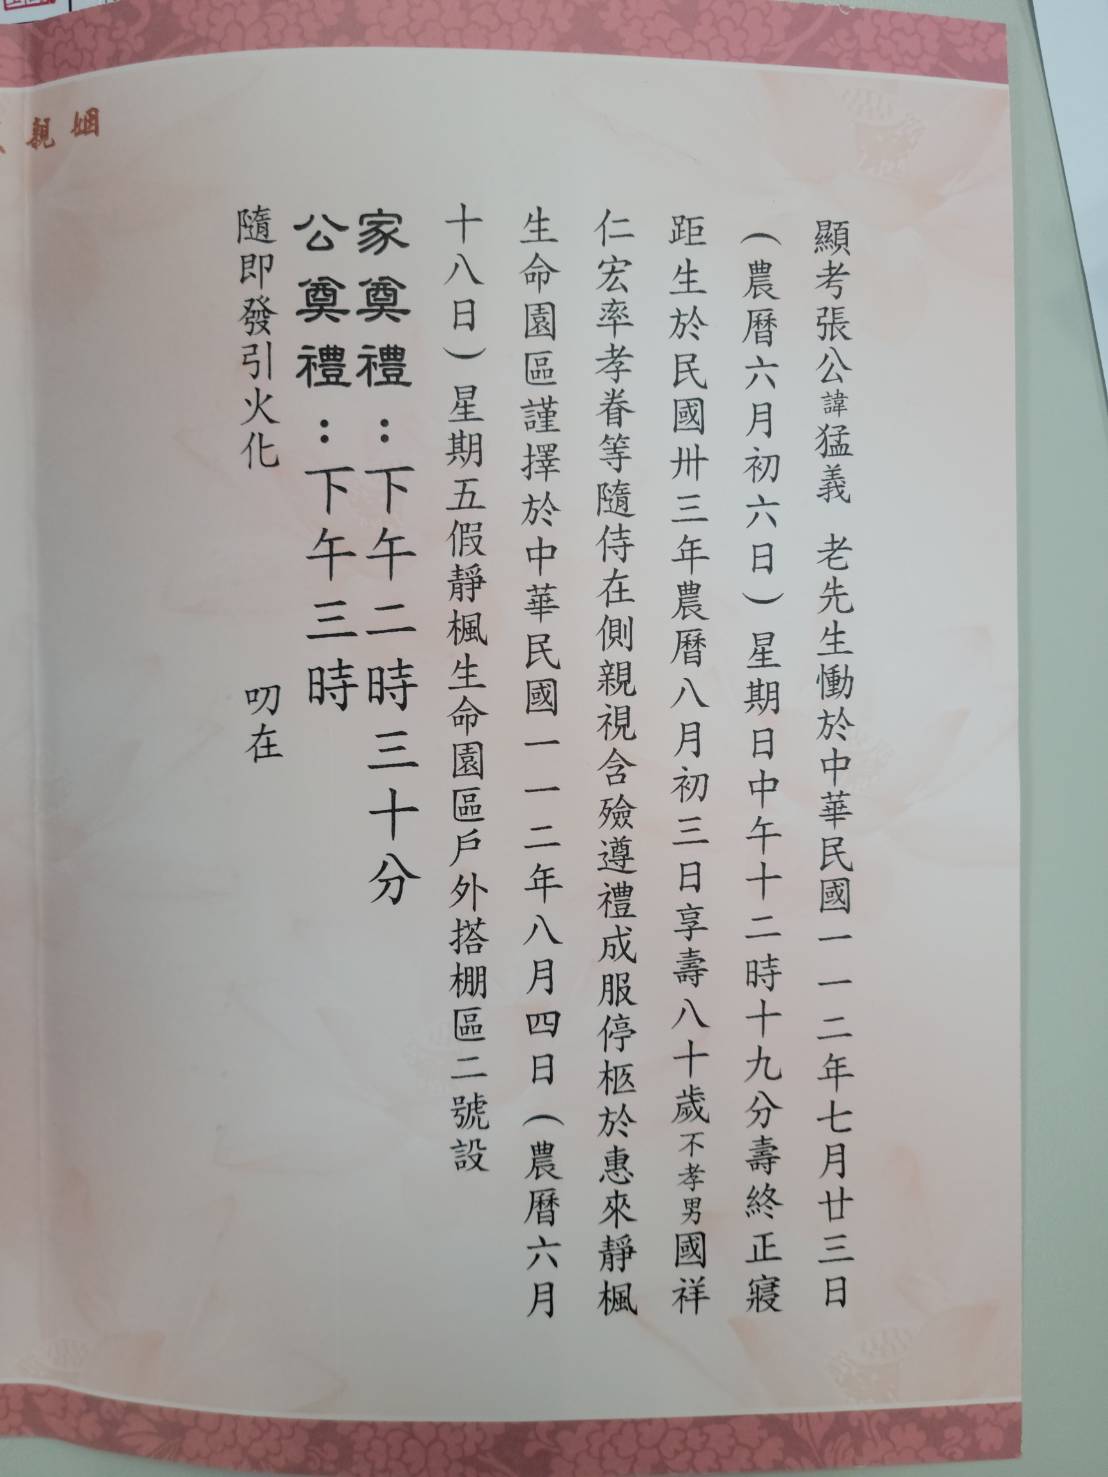 顯考張公諱猛義 老先生慟於中華民國一一二年七月廿三日
（農曆六月初六日）星期日中午十二時十九分壽終正寢
距生於民國卅三年農曆八月初三日享壽八十歲不孝男國祥
仁宏率孝眷等隨侍在側親視含殮遵禮成服停柩於惠來靜楓
生命園區謹擇於中華民國一一二年八月四日（農曆六月
十八日）星期五假靜楓生命園區戶外搭棚區二號設
家奠禮：下午二時三十分
公奠禮：下午三時
隨即發引火化 叨在
姻親